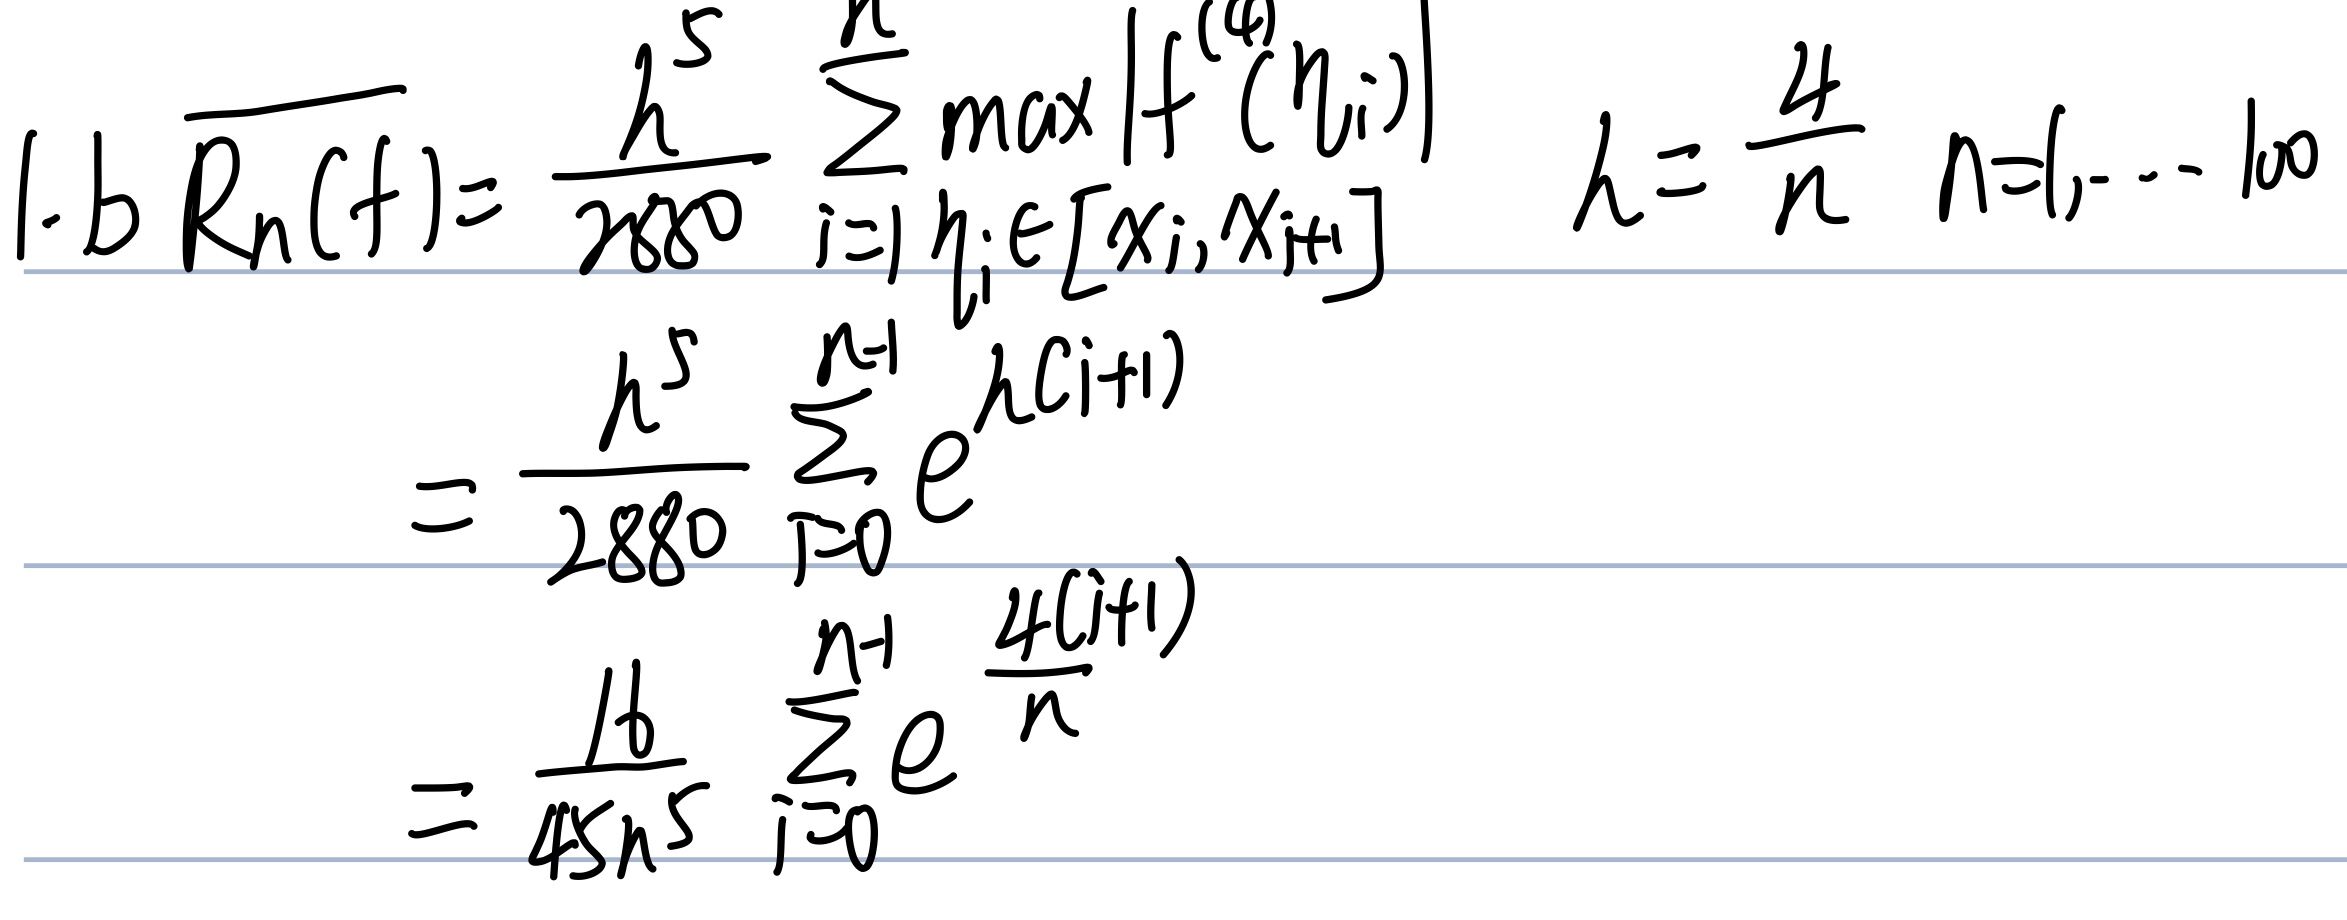 1.b $\overline{R_n(f)} = \frac{h^5}{2880} \sum_{i=1}^{n} \max_{\eta_i \in [x_i, x_{i+1}]} |f^{(4)}(\eta_i)|$ $h = \frac{4}{n}$ $n=1,\dots 100$
$= \frac{h^5}{2880} \sum_{i=0}^{n-1} e^{h(i+1)}$
$= \frac{16}{45n^5} \sum_{i=0}^{n-1} e^{\frac{4(i+1)}{n}}$